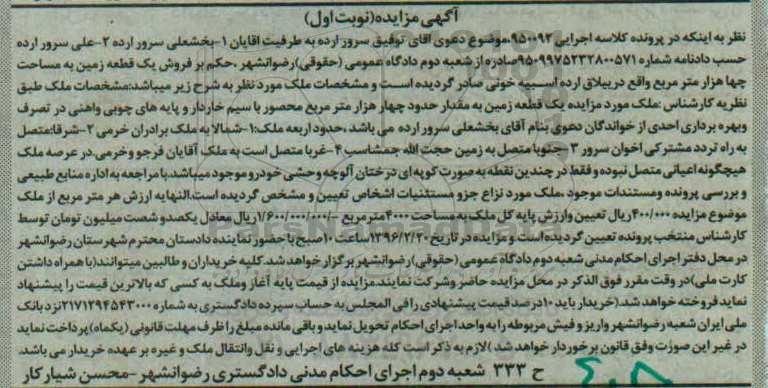 آگهی مزایده(نوبت اول)
نظر به اینکه در پرونده کلاسه اجرایی ۹۵۰۰۹۲،موضوع دعوی آقای توفیق سرور ارده به طرفیت آقایان ۱-بخشعلی سرور ارده ۲-علی سرور ارده
حسب دادنامه شماره ۹۵۰۹۹۷۵۲۳۲۸۰۰۵۷۱صادره از شعبه دوم دادگاه عمومی (حقوقی)رضوانشهر ،حکم بر فروش یک قطعه زمین به مساحت
چها هزار متر مربع واقع در ییلاق ارده اسبیه خونی صادر گردیده است و مشخصات ملک مورد نظر به شرح زیر میباشد:مشخصات ملک طبق
نظریه کارشناس :ملک مورد مزایده یک قطعه زمین به مقدار حدود چهار هزار متر مربع محصور با سیم خاردار و پایه های چوبی واهنی در تصرف
وبهره برداری احدی از خواندگان دعوی بنام آقای بخشعلی سرور ارده می باشد ،حدود اربعه ملک:۱-شمالا به ملک برادران خرمی ۲-شرقا:متصل
به راه تردد مشترکی اخوان سرور ۳-جنوبا متصل به زمین حجت الله جمشاسب ۴-غربا متصل است به ملک آقایان فرجو وخرمی.در عرصه ملک
هیچگونه اعیانی متصل نبوده و فقط در چندین نقطه به صورت کوپه ای درختان آلوچه وحشی خودرو موجود میباشد.با مراجعه به اداره منابع طبیعی
و بررسی پرونده ومستندات موجود ،ملک مورد نزاع جزو مستثنیات اشخاص تعیین و مشخص گردیده است.النهایه ارزش هر متر مربع از ملک
موضوع مزایده ۴۰۰/۰۰۰ریال تعیین وارزش پایه کل ملک به مساحت ۴۰۰۰مترمربع -/۱/۶۰۰/۰۰۰/۰۰۰ریال معادل یکصدو شصت میلیون تومان توسط
کارشناس منتخب پرونده تعیین گردیده است و مزایده در تاریخ ۱۳۹۶/۲/۲۰ساعت ۱۰صبح با حضور نماینده دادستان محترم شهرستان رضوانشهر
در محل دفتر اجرای احکام مدنی شعبه دوم دادگاه عمومی (حقوقی) رضوانشهر برگزار خواهد شد.کلیه خریداران و طالبین میتوانند(با همراه داشتن
کارت ملی)در وقت مقرر فوق الذکر در محل مزایده حاضر وشرکت نمایند.مزایده از قیمت پایه آغاز وملک به کسی که بالاترین قیمت را پیشنهاد
نماید فروخته خواهد شد.(خریدار باید ۱۰درصد قیمت پیشنهادی را فی المجلس به حساب سپرده دادگستری به شماره ۲۱۷۱۲۹۴۵۴۳۰۰۰نزد بانک
ملی ایران شعبه رضوانشهر واریز و فیش مربوطه را به واحد اجرای احکام تحویل نماید و باقی مانده مبلغ را ظرف مهلت قانونی (یکماه)پرداخت نماید
در غیر این صورت وفق قانون برخوردار خواهد شد )لازم به ذکر است کله هزینه های اجرایی و نقل وانتقال ملک و غیره بر عهده خریدار می باشد.
ح ۳۳۳ شعبه دوم اجرای احکام مدنی دادگستری رضوانشهر -محسن شیار کار